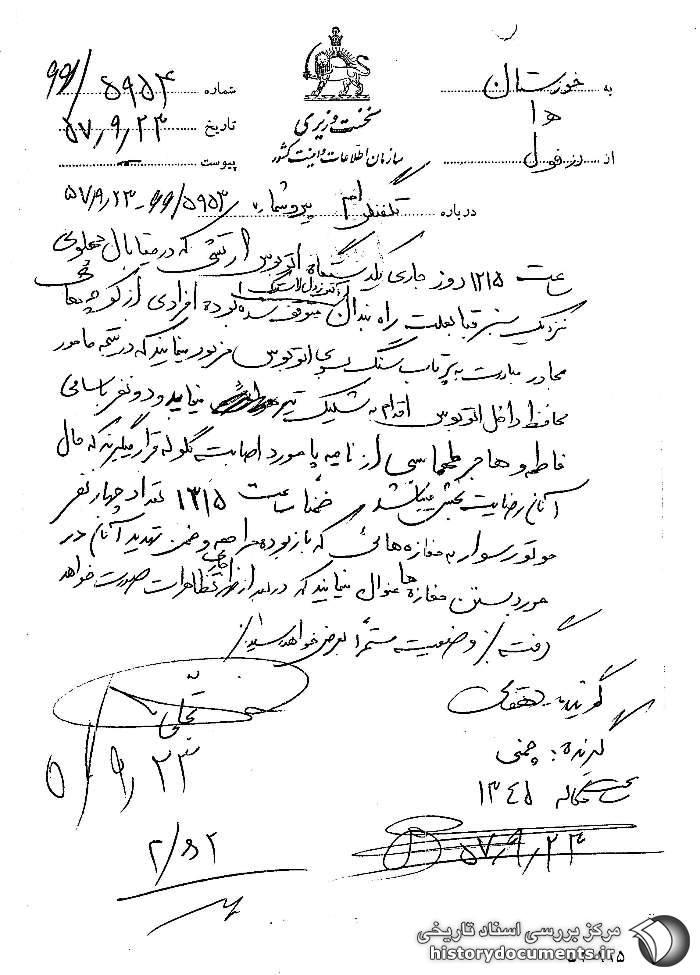 به خوزستان
ه ۱
از دزفول
نخست وزیری
سازمان اطلاعات و امنیت کشور
شماره ۵۹۵۴/
تاریخ ۵۷,۹,۲۳
پیوست
درباره پیرو شماره ۵۹۵۳/ - ۵۷/۹/۲۳
ساعت ۱۲۱۵ روز جاری یکدستگاه اتوبوس ارتشی که در مقابل پهلوی
نزدیک سبز قبا بعلت راه بندان متوقف شده بوده افرادی از کوچه های
مجاور مبادرت به پرتاب سنگ بسوی اتوبوس مزبور مینمایند که در نتیجه مامور
محافظ داخل اتوبوس اقدام به شلیک تیر نماید و دو نفر باسامی
فاطمه و هاجر از ناحیه پا مورد اصابت گلوله قرار میگیرند که حال
آنان رضایت بخش میباشد ضمناً ساعت ۱۳۱۵ تعداد چهار نفر
موتور سوار به مغازه هائی که باز بوده مراجعه و ضمن تهدید آنان در
مورد بستن مغازه ها عنوان نمایند که در بعد از ظهر تظاهرات صورت خواهد
گرفت از وضعیت مستمراً بعرض خواهد رسید/
گوینده:
گیرنده: چمنی
ساعت مکاله ۱۳۴۵
۵۷,۹,۲۳
۹/۲۳
مرکز بررسی اسناد تاریخی
historydocuments.ir